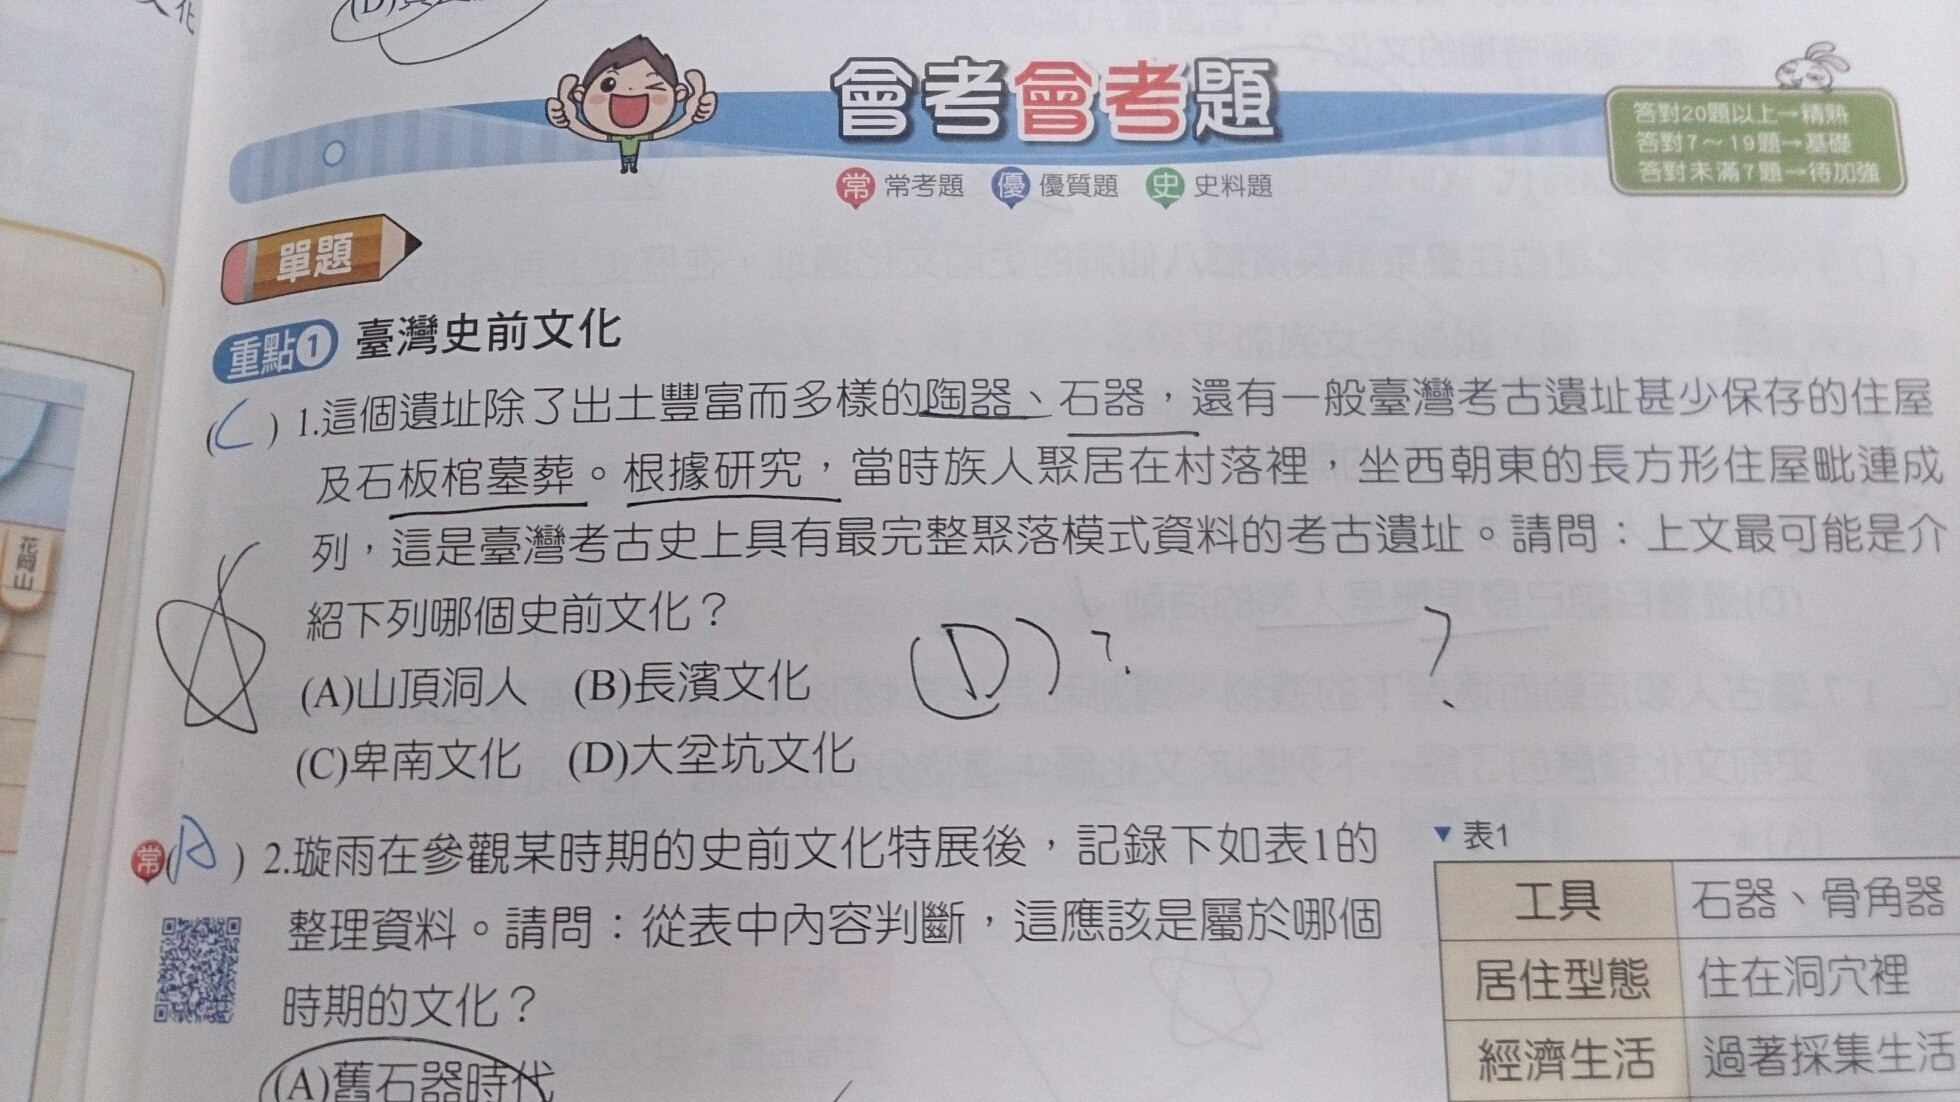 文化
會考會考題
常 常考題 優 優質題 史 史料題
答對20題以上→精熟
答對7～19題→基礎
答對未滿7題→待加強
單題
重點1 臺灣史前文化
(C) 1.這個遺址除了出土豐富而多樣的陶器、石器，還有一般臺灣考古遺址甚少保存的住屋
及石板棺墓葬。根據研究，當時族人聚居在村落裡，坐西朝東的長方形住屋毗連成
列，這是臺灣考古史上具有最完整聚落模式資料的考古遺址。請問：上文最可能是介
紹下列哪個史前文化？
(D)? ?
(A)山頂洞人 (B)長濱文化
(C)卑南文化 (D)大坌坑文化
花岡山
常(A) 2.璇雨在參觀某時期的史前文化特展後，記錄下如表1的
整理資料。請問：從表中內容判斷，這應該是屬於哪個
時期的文化？
(A)舊石器時代
▼表1
工具 石器、骨角器
居住型態 住在洞穴裡
經濟生活 過著採集生活